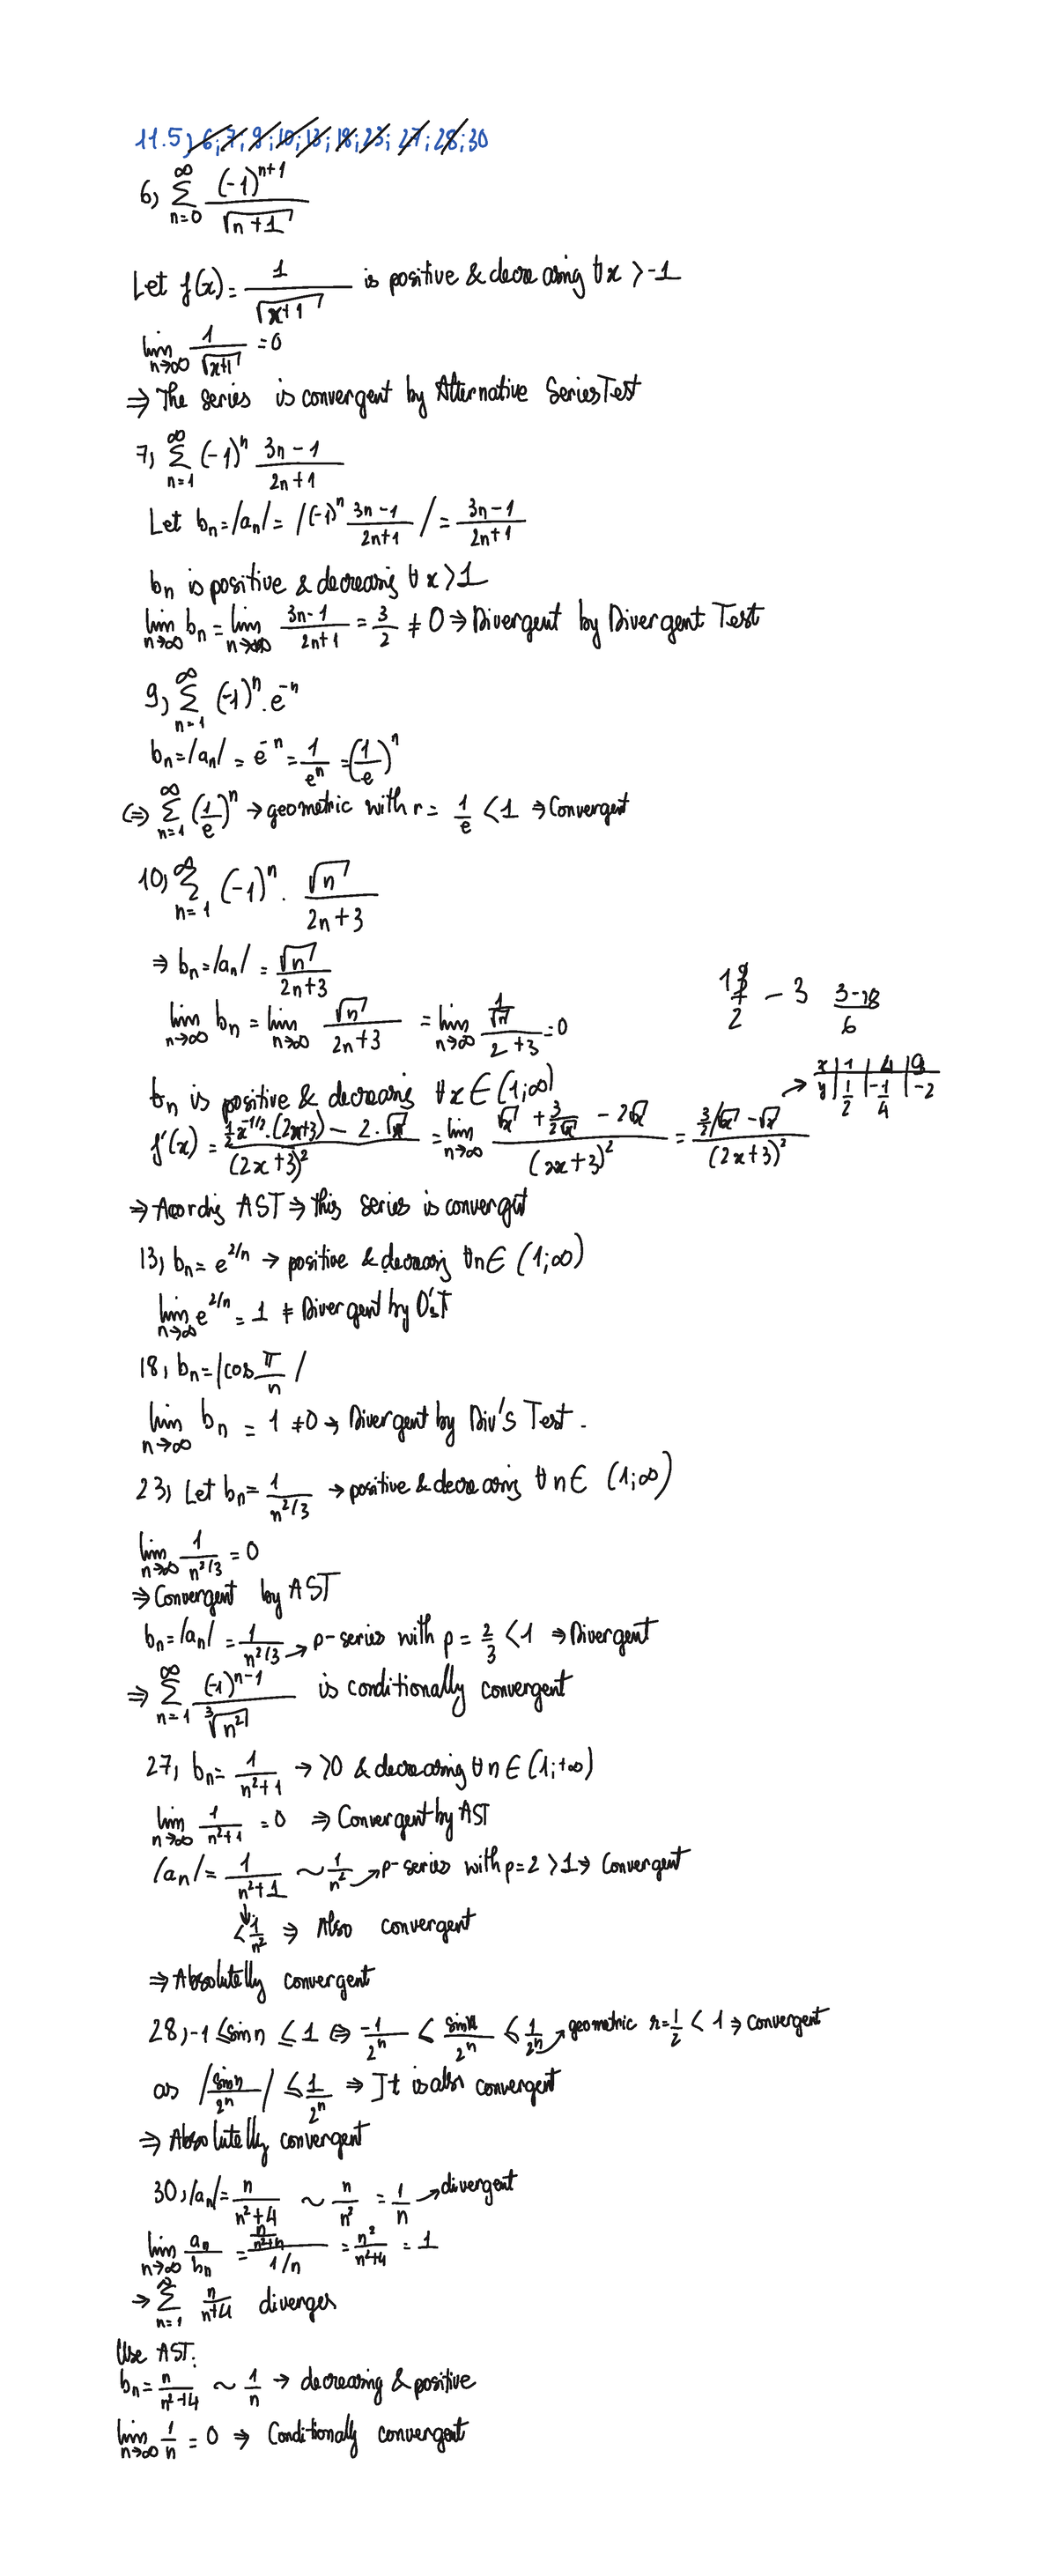 11.5) 6; 7; 9; 10; 13; 18; 23; 27; 28; 30
6, ∑_{n=0}^{∞} (-1)^{n+1} / √(n+1)
Let f(x) = 1/√(x+1) is positive & decreasing ∀x > -1
lim_{n→∞} 1/√(x+1) = 0
⇒ The series is convergent by Alternative Series Test
7, ∑_{n=1}^{∞} (-1)^n (3n-1)/(2n+1)
Let b_n = |a_n| = |(-1)^n (3n-1)/(2n+1)| = (3n-1)/(2n+1)
b_n is positive & decreasing ∀x > 1
lim_{n→∞} b_n = lim_{n→∞} (3n-1)/(2n+1) = 3/2 ≠ 0 ⇒ Divergent by Divergent Test
9, ∑_{n=1}^{∞} (-1)^n . e^{-n}
b_n = |a_n| = e^{-n} = 1/e^n = (1/e)^n
⇔ ∑_{n=1}^{∞} (1/e)^n → geometric with r = 1/e < 1 ⇒ Convergent
10, ∑_{n=1}^{∞} (-1)^n . √n/(2n+3)
⇒ b_n = |a_n| = √n/(2n+3)
lim_{n→∞} b_n = lim_{n→∞} √n/(2n+3) = lim_{n→∞} (1/√n)/(2+3) = 0
- 3 (3-18)/6
b_n is positive & decreasing ∀x ∈ (1;∞)
→ x | 1 | 4 | 9
y | 1/2 | -1/4 | -2
f'(x) = (1/2 x^{-1/2}.(2x+3) - 2.√x)/(2x+3)^2 = lim_{n→∞} (√x + 3/(2√x) - 2√x)/(2x+3)^2 = (3/2/√x - √x)/(2x+3)^2
⇒ Acordig AST ⇒ this series is convergent
13, b_n = e^{2/n} → positive & decreasing ∀n ∈ (1;∞)
lim_{n→∞} e^{2/n} = 1 ≠ Divergent by D'sT
18, b_n = |cos π/n|
lim_{n→∞} b_n = 1 ≠ 0 → Divergent by Div's Test.
23, Let b_n = 1/n^{2/3} → positive & decreasing ∀n ∈ (1;∞)
lim_{n→∞} 1/n^{2/3} = 0
⇒ Convergent by AST
b_n = |a_n| = 1/n^{2/3} → p-series with p = 2/3 < 1 ⇒ Divergent
⇒ ∑_{n=1}^{∞} (-1)^{n-1}/∛(n^2) is conditionally convergent
27, b_n = 1/(n^2+1) → >0 & decreasing ∀n ∈ (1;+∞)
lim_{n→∞} 1/(n^2+1) = 0 ⇒ Convergent by AST
|a_n| = 1/(n^2+1) ~ 1/n^2 → p-series with p=2 > 1 ⇒ Convergent
↓ < 1/n^2 ⇒ Also convergent
⇒ Absolutelly convergent
28, -1 ≤ sin n ≤ 1 ⇔ -1/2^n ≤ sin n/2^n ≤ 1/2^n → geometric r = 1/2 < 1 ⇒ Convergent
as |sin n/2^n| ≤ 1/2^n ⇒ It is also convergent
⇒ Absolutelly convergent
30, |a_n| = n/(n^2+4) ~ n/n^2 = 1/n → divergent
lim_{n→∞} a_n/b_n = (n/(n^2+4))/(1/n) = n^2/(n^2+4) = 1
→ ∑_{n=1}^{∞} n/(n+4) diverges
Use AST:
b_n = n/(n^2+4) ~ 1/n → decreasing & positive
lim_{n→∞} 1/n = 0 ⇒ Conditionally convergent